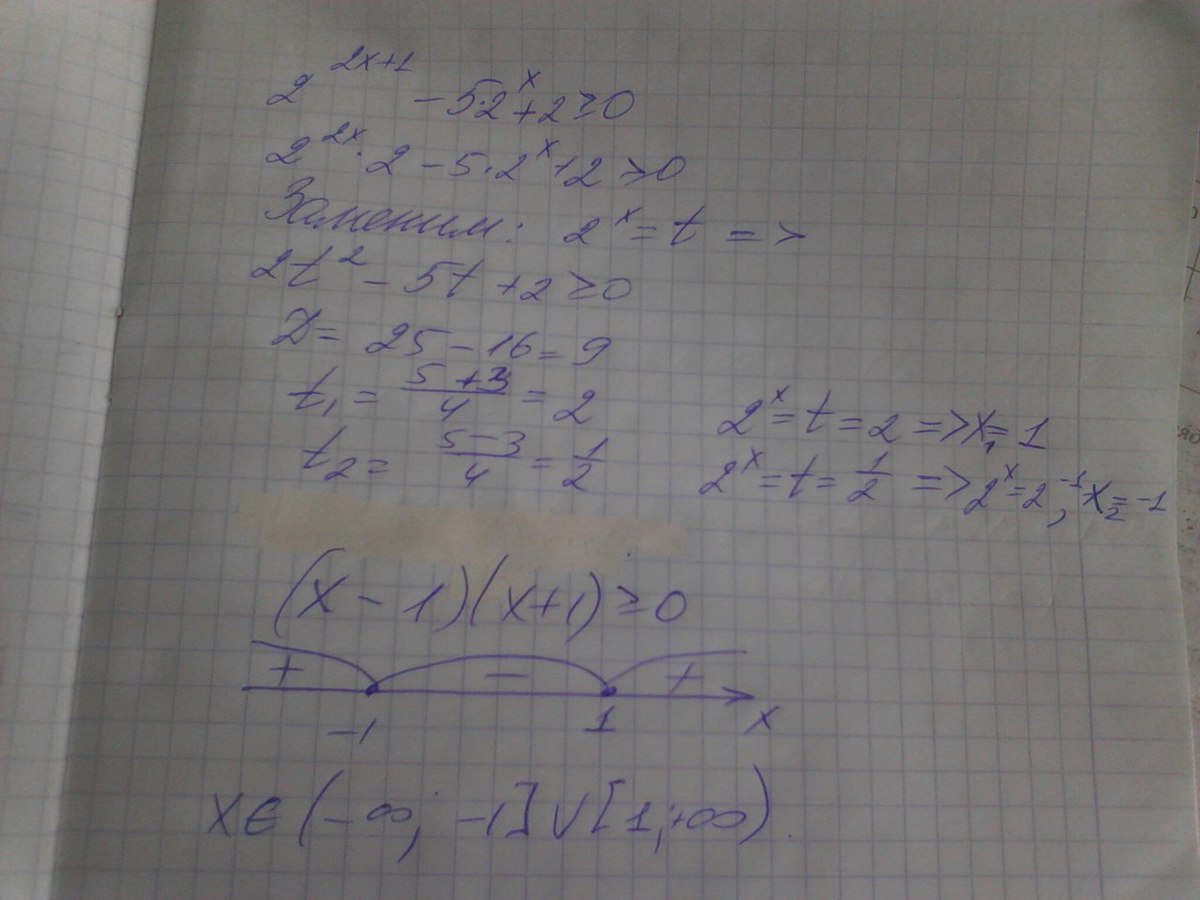 2^{2x+1} - 5·2^x + 2 ≥ 0
2^{2x} · 2 - 5·2^x + 2 ≥ 0
Заменим: 2^x = t =>
2t^2 - 5t + 2 ≥ 0
D = 25 - 16 = 9
t_1 = \frac{5+3}{4} = 2
2^x = t = 2 => x_1 = 1
t_2 = \frac{5-3}{4} = \frac{1}{2}
2^x = t = \frac{1}{2} => 2^x = 2^{-1}, x_2 = -1
(x - 1)(x + 1) ≥ 0
+ − +
-1 1 x
x ∈ (-∞; -1] ∨ [1; +∞)